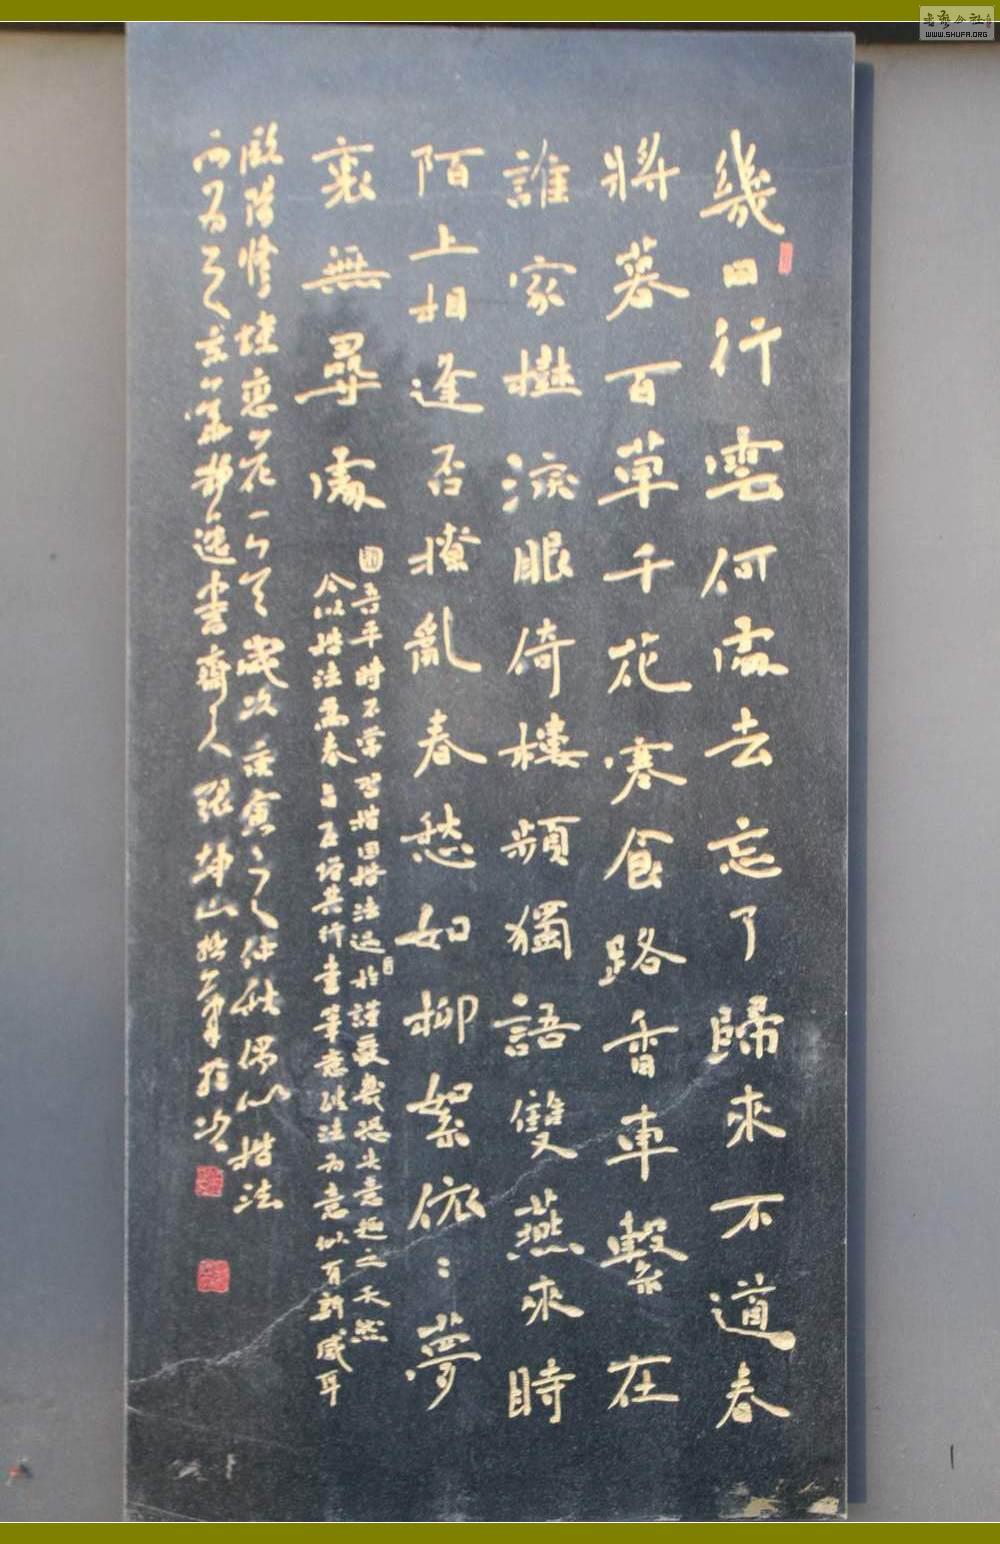 幾日行雲何處去忘了歸來不道春
將暮百草千花寒食路香車繫在
誰家樹淚眼倚樓頻獨語雙燕來時
陌上相逢否撩亂春愁如柳絮依:夢
裏無尋處
國吾平時不常習楷因楷法過於謹嚴幾恐失意趣之天然
今以楷法為本
其行書筆意
法為意似有新感耳
歐陽修蝶戀花一首歲次庚寅之仲秋偶以楷法
而為之
書齋人張
WWW.SHUFA.ORG